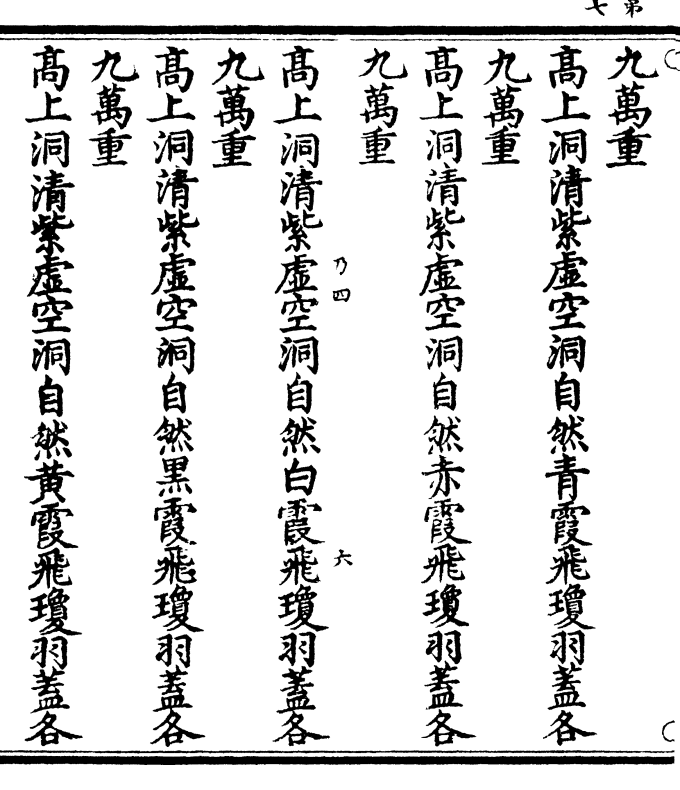 弟
七
九萬重
髙上洞清紫虛空洞自然青霞飛瓊羽蓋各
九萬重
髙上洞清紫虛空洞自然赤霞飛瓊羽蓋各
九萬重
乃四
六
髙上洞清紫虛空洞自然白霞飛瓊羽蓋各
九萬重
髙上洞清紫虛空洞自然黒霞飛瓊羽蓋各
九萬重
髙上洞清紫虛空洞自然黄霞飛瓊羽蓋各